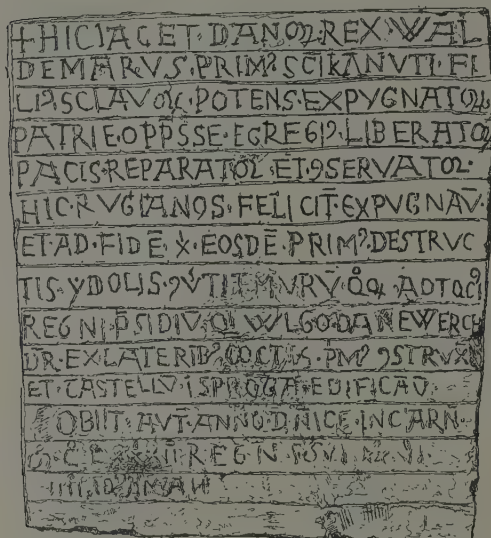 +HIC IACET·DANOꝜ·REX·WAL̄
DEMARVS·PRIMꝰ SC̄I KANVTI·FI
LIꝰ·SCLAVOꝜ·POTENS·EXPVGNATOꝜ
PATRIE·OPP̄SSE·EGREGIꝰ·LIBERATOꝜ
PACIS·REPARATOꝜ·ET·ꝯSERVATOꝜ·
HIC·RVGIANOS·FELICIT̄·EXPVGNAV̄·
ET·AD·FIDĒ·X̄·EOSDĒ·PRIMꝰ·DESTRVC
TIS·YDOLIS·ꝯV̄TIT·MVRV̄·
REGNI·P̄SIDIV̄·Q̇·WLGO·DANEWERCH
DR·EX·LATERIBꝰ COCTIS·PMꝰ ꝯSTRVX̄
ET·CASTELLV̄·I SPROGA·EDIFICAV̄·
OBIIT·AVT·ANNO·DN̄ICE·INCARN·
REGN̄